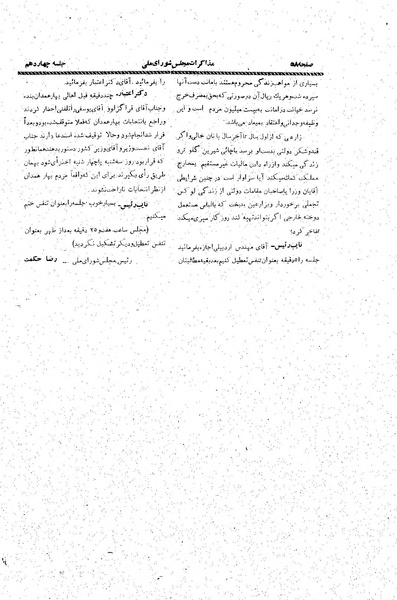 صفحه ۵۸
مذاکرات مجلس شورای ملی
جلسه چهاردهم
بسیاری از مواهب زندگی محروم هستند بامانت بدست آنها
سپرده شده و هر یک ریال آن در صورتی که بحق بمصرف خرج
نرسد خیانت در امانت به بیست میلیون مردم است و این
وظیفه وجدانی و اعتقاد بمیعاد می‌باشد.
زارعی که از اول سال تا آخر سال با نان خالی و اگر
قند و شکر دولتی بدست او برسد با چائی شیرین گلو تر
زندگی میکند و از راه دادن مالیات غیر مستقیم بمخارج
مملکت کمک میکند آیا سزاوار است در چنین شرایطی
آقایان وزرا یا صاحبان مقامات دولتی از زندگی لوکس
تجملی برخوردار و برادرش بدبخت که بالباس مستعمل
دوخته خارجی اگر بتواند تهیه کند روزگار سپری میکند
تفاخر کرد؛
نایب رئیس- آقای مهندس اردبیلی اجازه بفرمائید
جلسه را ۵ دقیقه بعنوان تنفس تعطیل کنیم بعد بقیه مطالبتان
را بفرمائید. آقای دکتر اعتبار بفرمائید.
دکتر اعتبار- چند دقیقه قبل اهالی بهار همدان بنده
وجناب آقای قراگزلو آقای یوسفی را تلفنی احضار کردند
و راجع بانتخابات بهار همدان که فعلا متوقف شده بود و بعداً
قرار شد انجام شود و حالا توقیف شده استدعا دارند جناب
آقای نخست وزیر و آقای وزیر کشور دستور بدهند همانطور
که قرار بود روز سه شنبه یا چهارشنبه اخذ رأی شود بهمان
طریق رأی بگیرند برای این که واقعاً مردم بهار همدان
از نظر انتخابات ناراحت نشوند.
نایب رئیس- بسیار خوب جلسه را بعنوان تنفس ختم
میکنیم
(مجلس ساعت هفت و ۲۵ دقیقه بعد از ظهر بعنوان
تنفس تعطیل و دیگر تشکیل نگردید)
رئیس مجلس شورای ملی- رضا حکمت